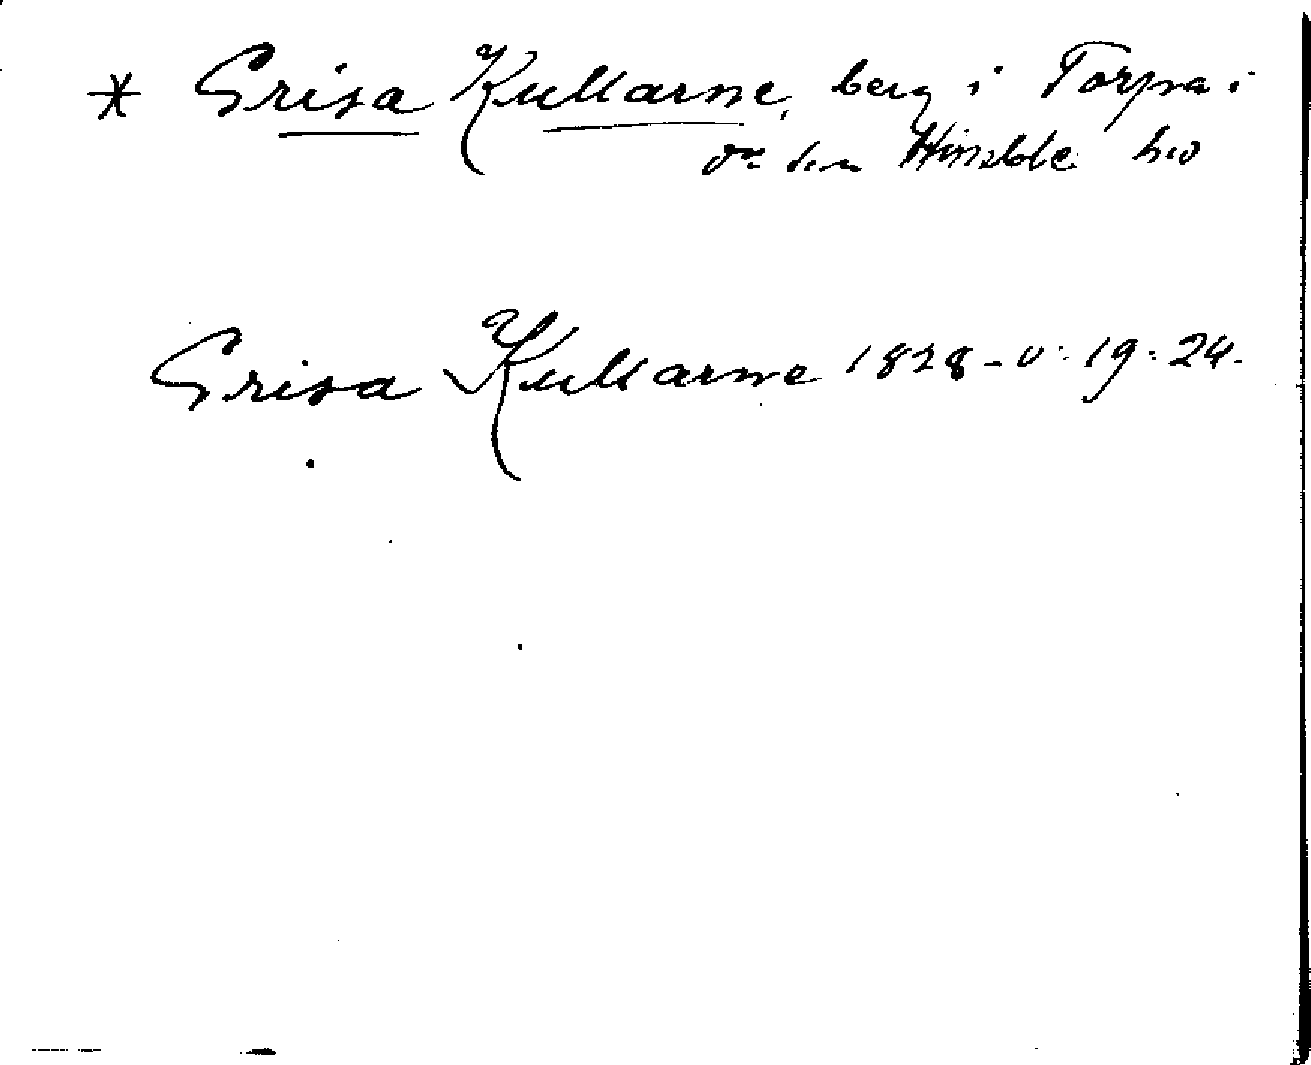 * Grisa Kullarne, berg i Torpa i
Himble hd
Grisa Kullarne 1828 - v: 19: 24.